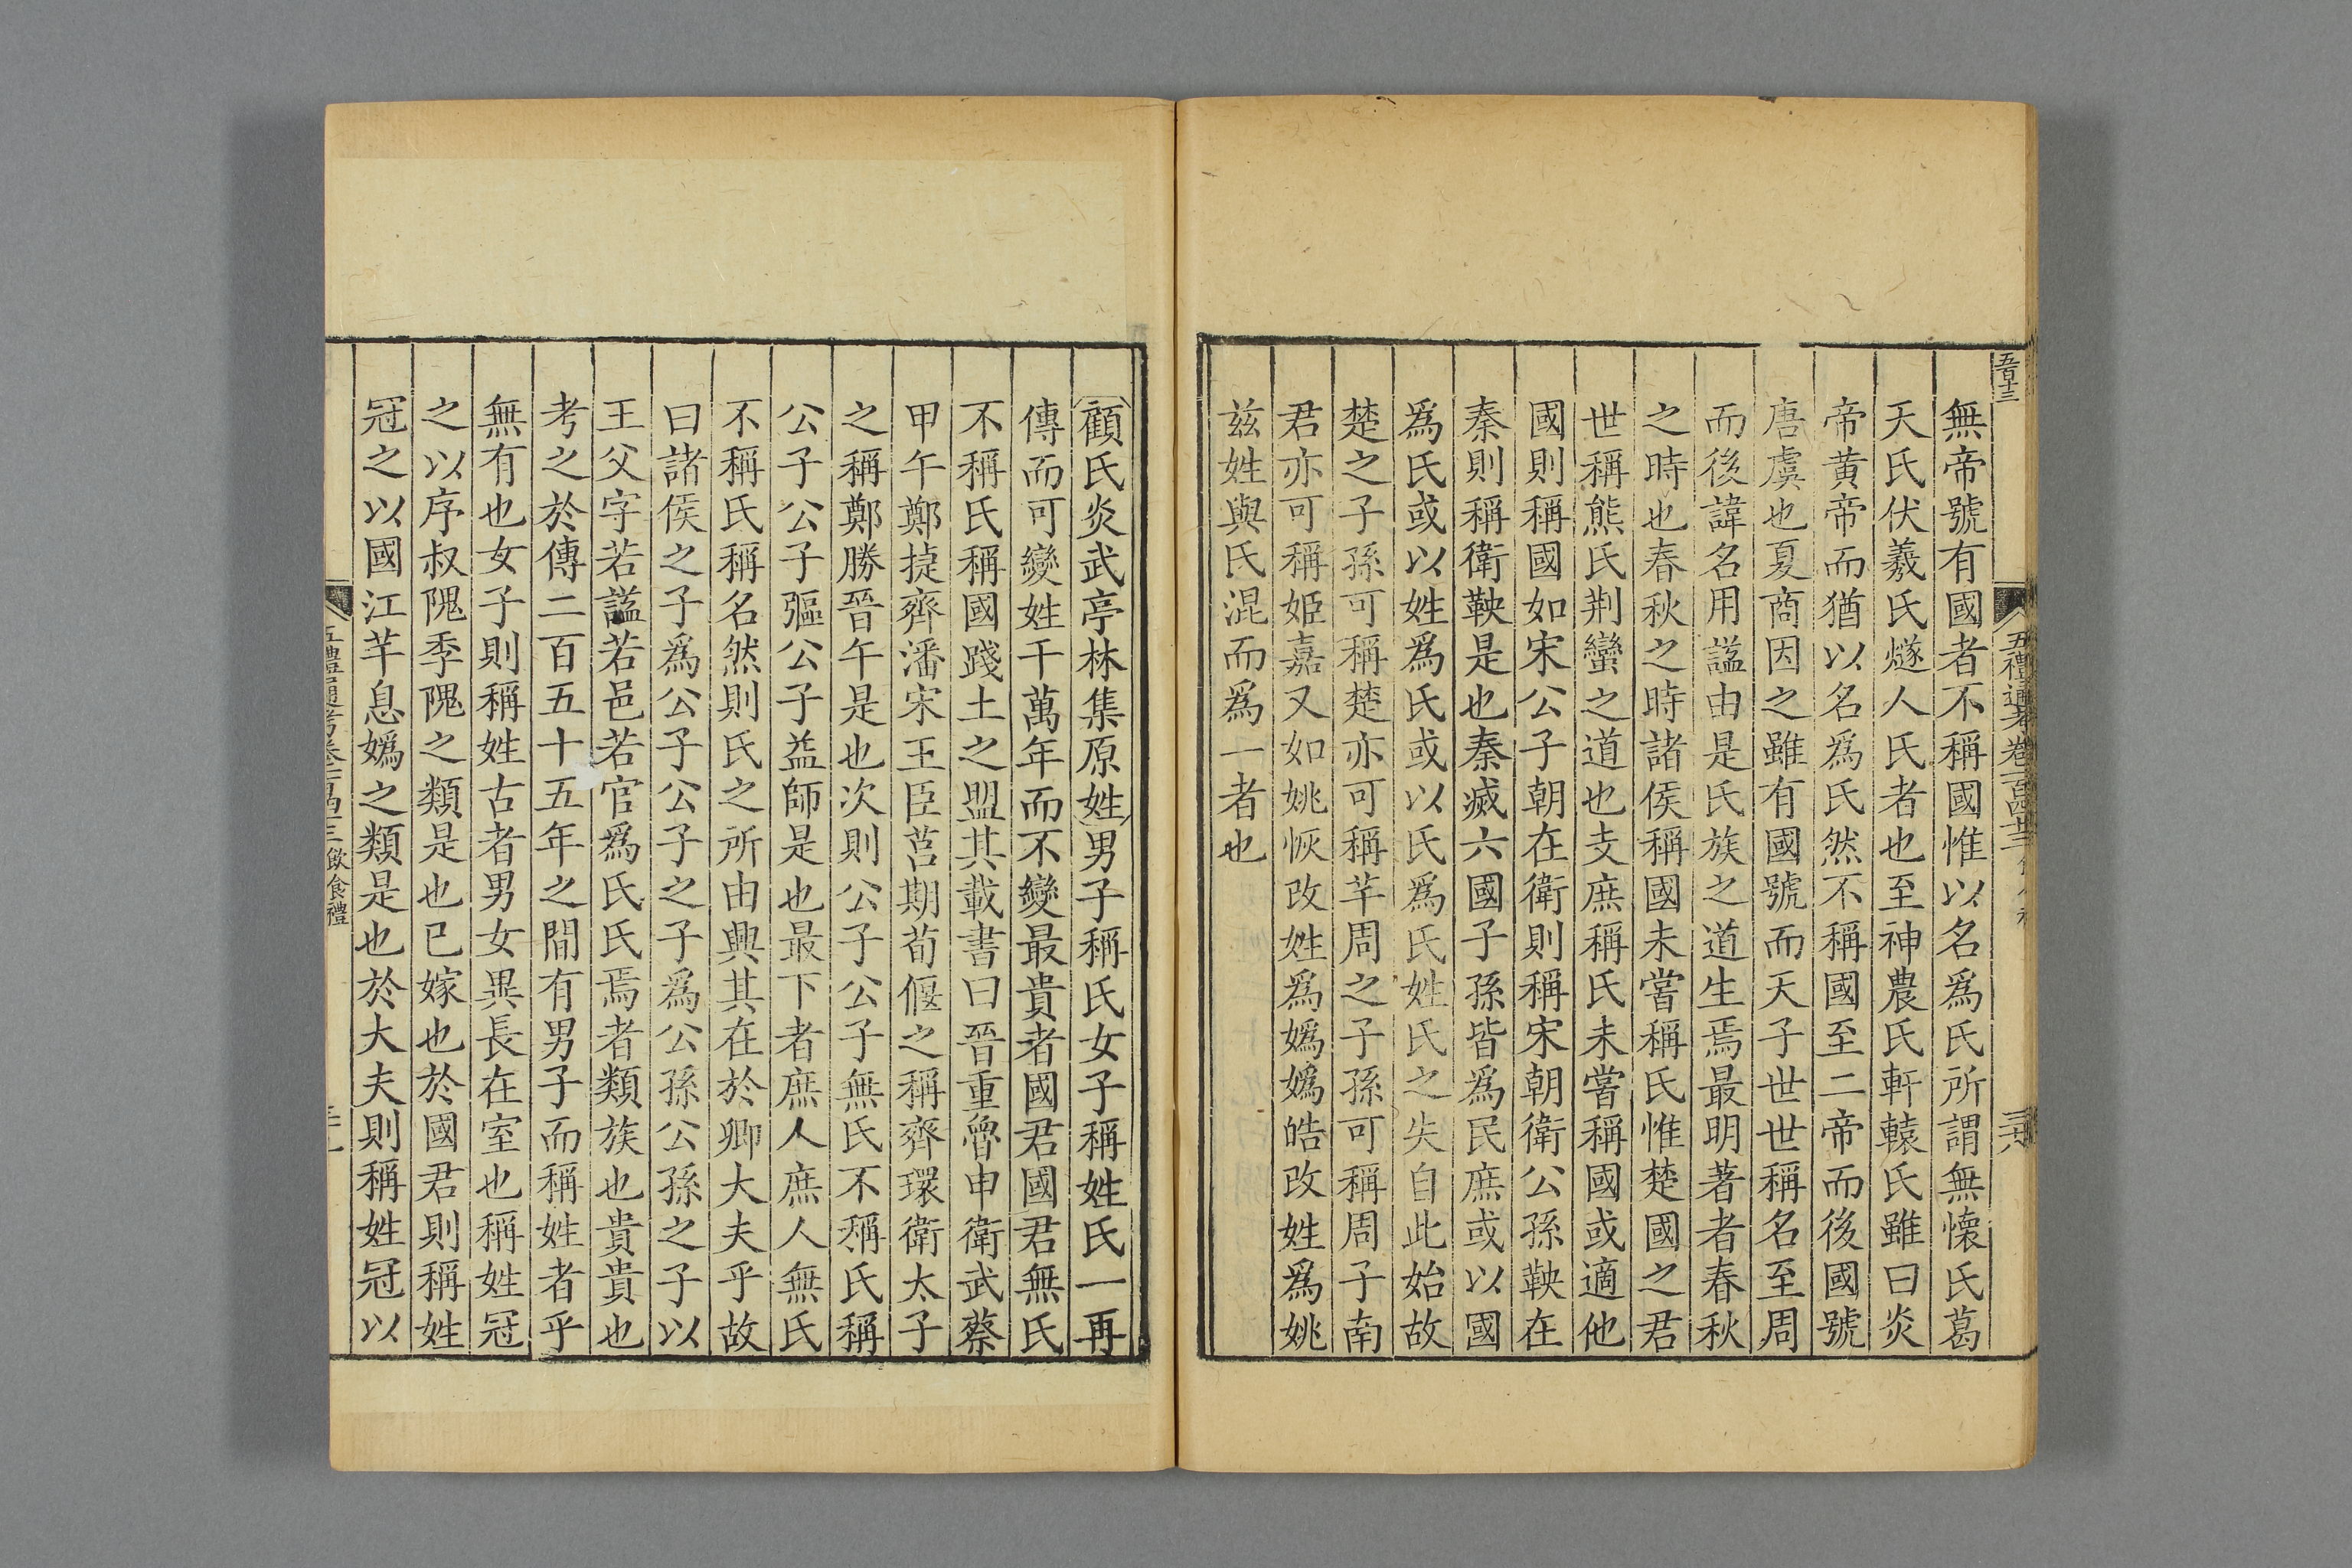 五百十三
五禮通考卷一百四十三
無帝號有國者不稱國惟以名爲氏所謂無懷氏葛
天氏伏羲氏燧人氏者也至神農氏軒轅氏雖曰炎
帝黃帝而猶以名爲氏然不稱國至二帝而後國號
唐虞也夏商因之雖有國號而天子世世稱名至周
而後諱名用諡由是氏族之道生焉最明著者春秋
之時也春秋之時諸侯稱國未嘗稱氏惟楚國之君
世稱熊氏荆蠻之道也支庶稱氏未嘗稱國或適他
國則稱國如宋公子朝在衛則稱宋朝衛公孫鞅在
秦則稱衛鞅是也秦滅六國子孫皆爲民庶或以國
爲氏或以姓爲氏或以氏爲氏姓氏之失自此始故
楚之子孫可稱楚亦可稱芊周之子孫可稱周子南
君亦可稱姬嘉又如姚恢改姓爲嬀嬀皓改姓爲姚
兹姓與氏混而爲一者也
顧氏炎武亭林集原姓男子稱氏女子稱姓氏一再
傳而可變姓千萬年而不變最貴者國君國君無氏
不稱氏稱國踐土之盟其載書曰晉重魯申衛武蔡
甲午鄭捷齊潘宋王臣莒期荀偃之稱齊環衛太子
之稱鄭勝晉午是也次則公子公子無氏不稱氏稱
公子公子彄公子益師是也最下者庶人庶人無氏
不稱氏稱名然則氏之所由興其在於卿大夫乎故
曰諸侯之子爲公子公子之子爲公孫公孫之子以
王父字若諡若邑若官爲氏氏焉者類族也貴貴也
考之於傳二百五十五年之間有男子而稱姓者乎
無有也女子則稱姓古者男女異長在室也稱姓冠
之以序叔隗季隗之類是也已嫁也於國君則稱姓
冠之以國江芊息嬀之類是也於大夫則稱姓冠以
五禮通考卷一百四十三 飲食禮